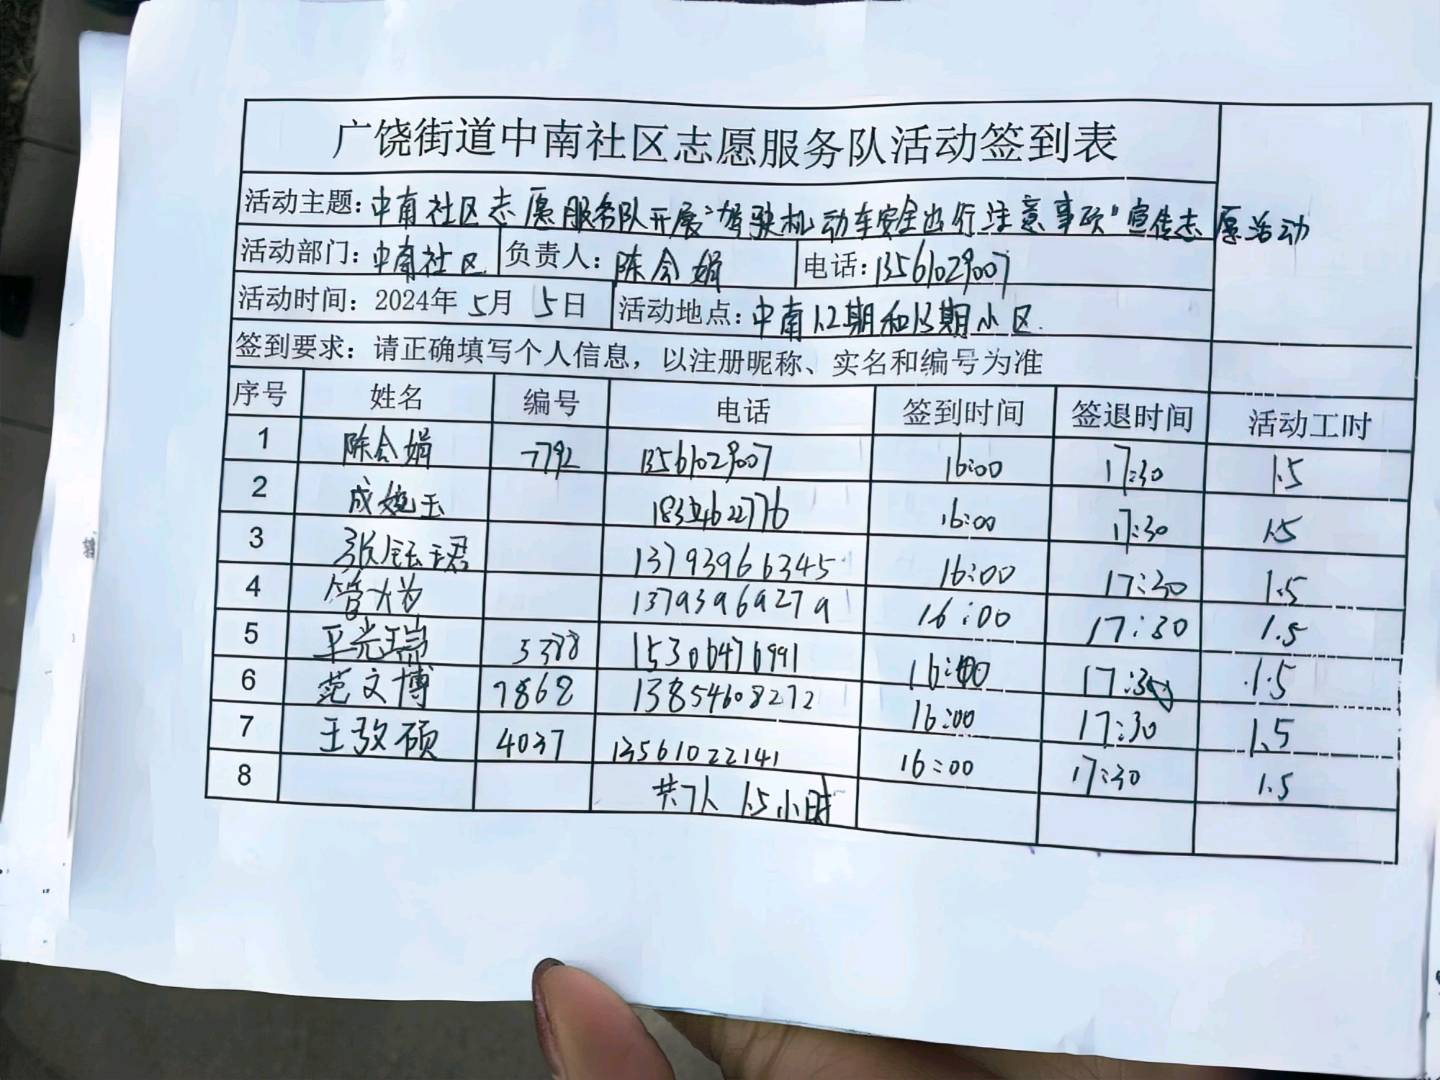 广饶街道中南社区志愿服务队活动签到表
活动主题:中南社区志愿服务队开展"驾驶机动车安全出行注意事项"宣传志愿活动
活动部门:中南社区 负责人:陈会娟 电话:13561029007
活动时间:2024年5月5日 活动地点:中南12期和13期小区
签到要求:请正确填写个人信息,以注册昵称、实名和编号为准
序号 姓名 编号 电话 签到时间 签退时间 活动工时
1 陈会娟 7792 13561029007 16:00 17:30 1.5
2 成婉玉 16:00 17:30 1.5
3 张钰珺 13793966345 16:00 17:30 1.5
4 管 13793969279 16:00 17:30 1.5
5 光瑞 5388 15306476991 16:00 17:30 1.5
6 范文博 7868 13854608272 16:00 17:30 1.5
7 王孜硕 4037 13561022141 16:00 17:30 1.5
8 共7人 1.5小时